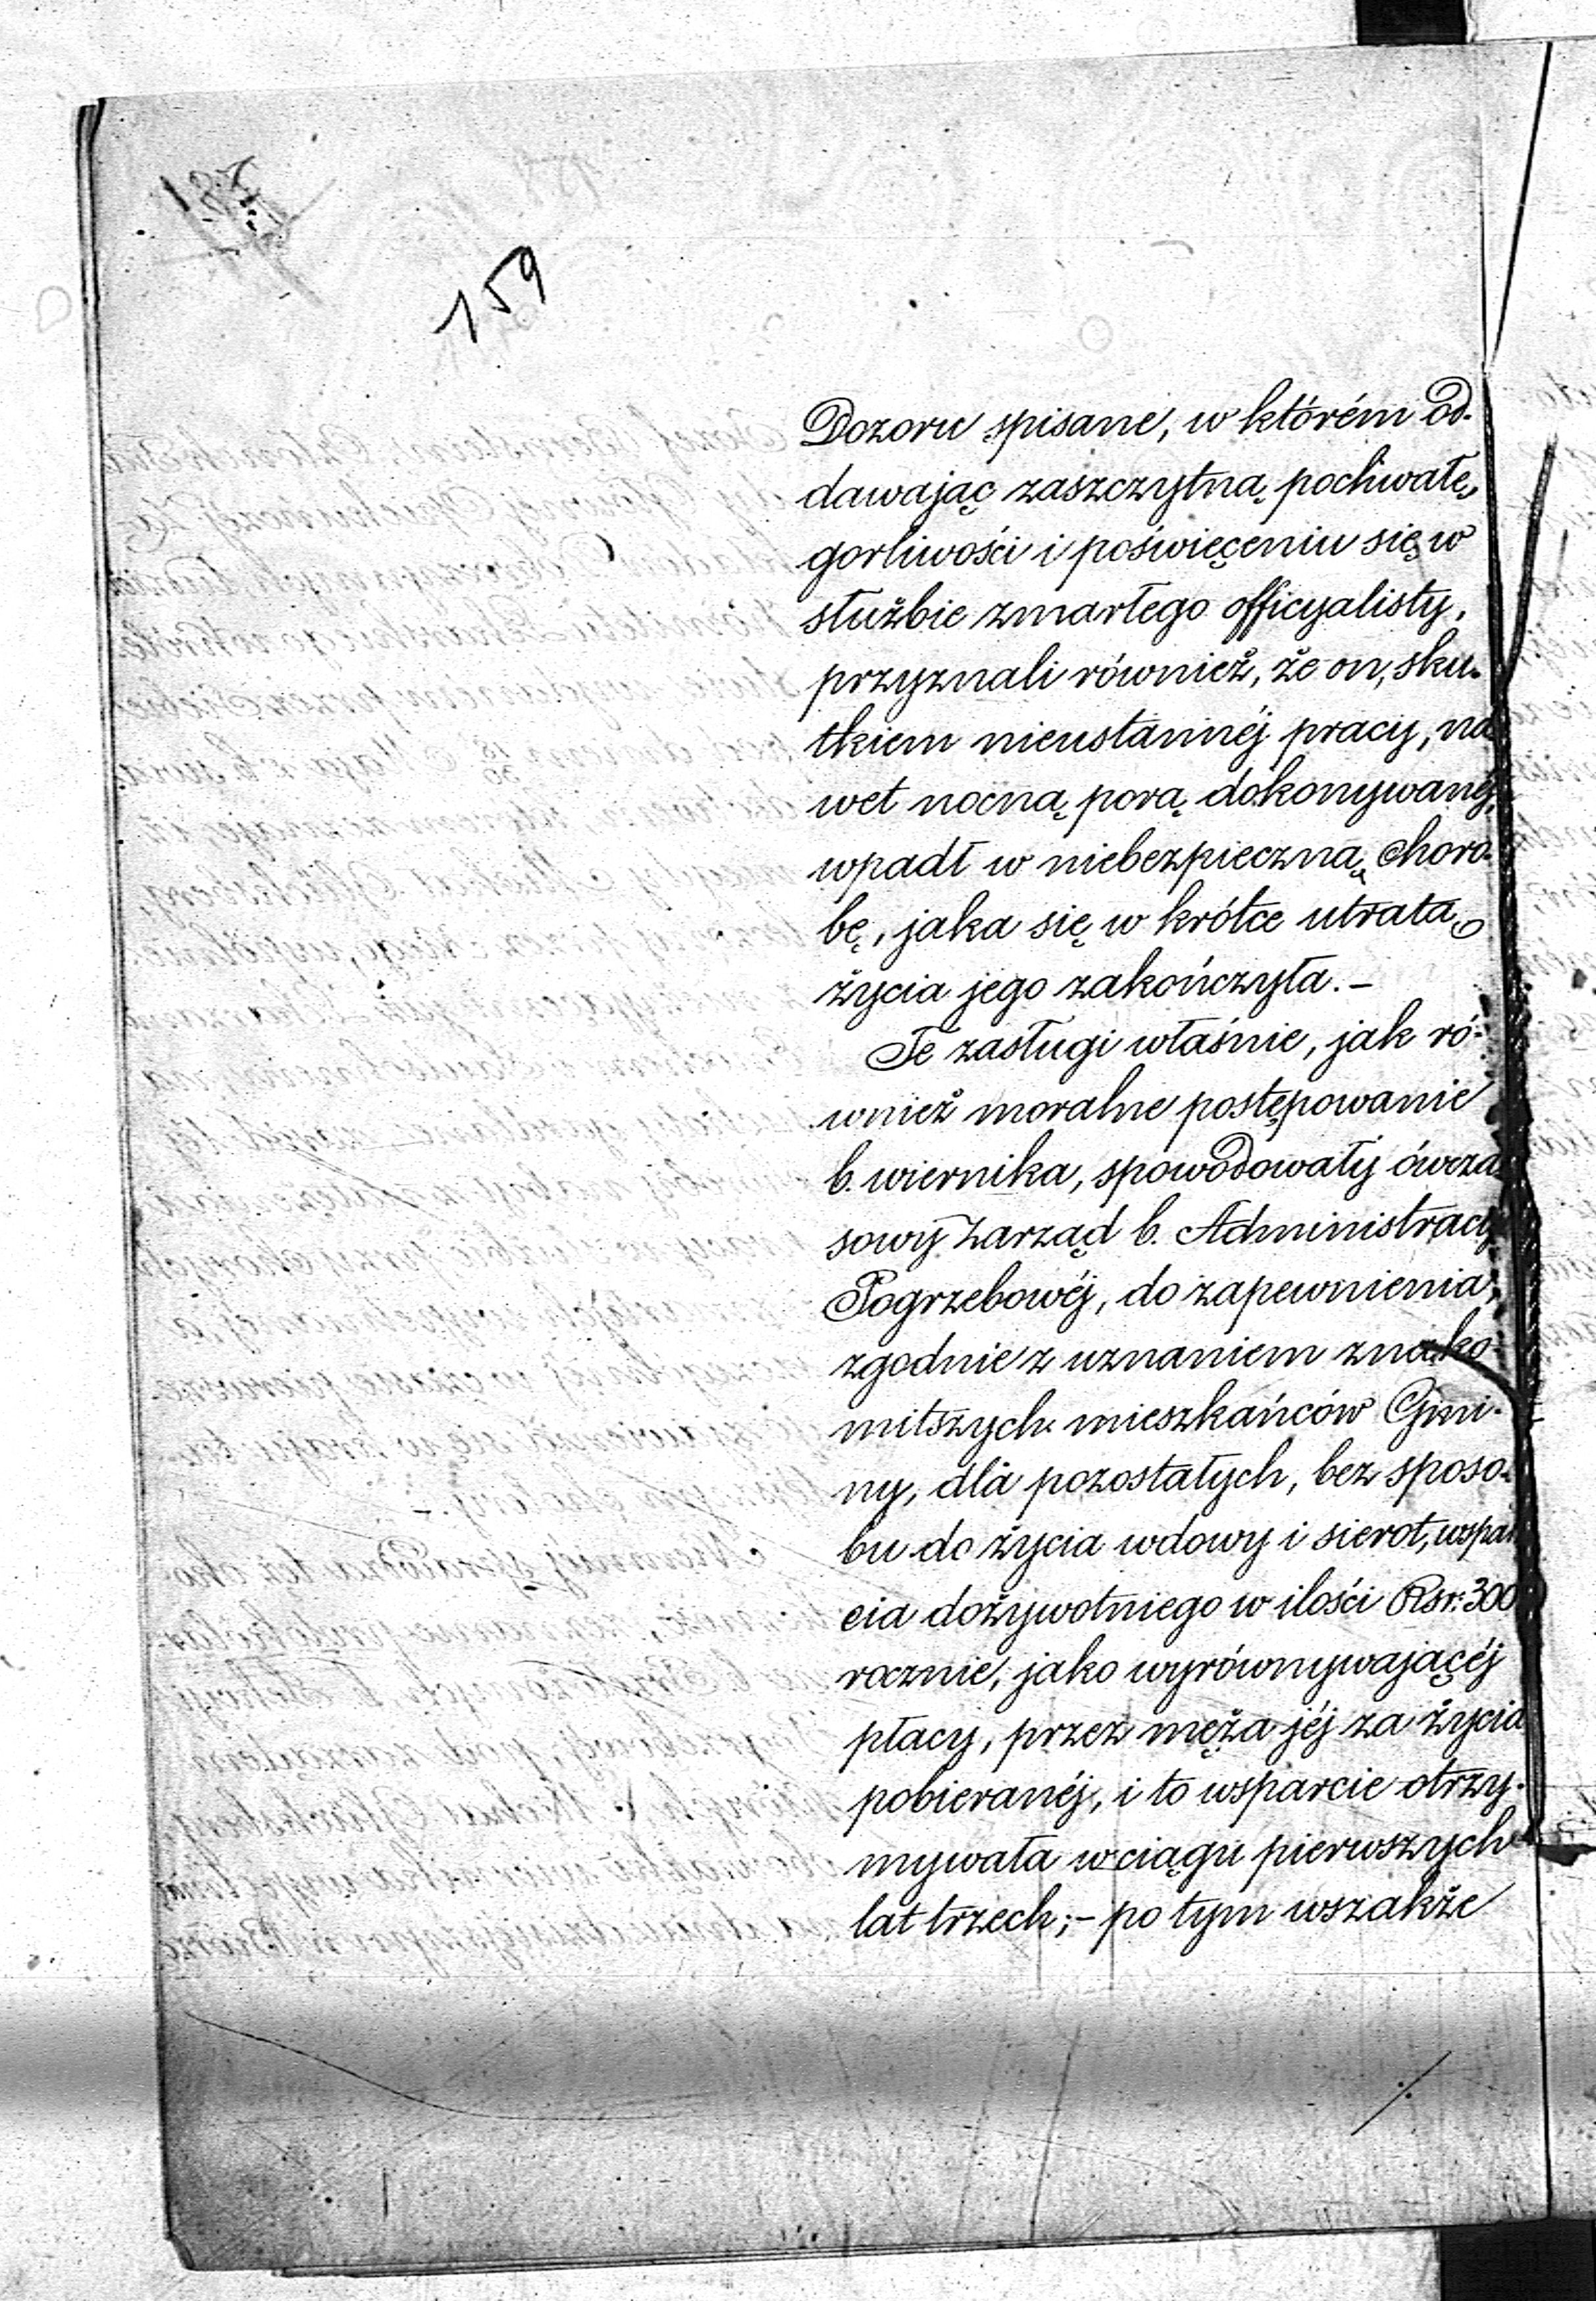 159
Dozoru spisane, w którém od-
dawając zaszczytną pochwałę,
gorliwości i poświęceniu się w
służbie zmarłego officyalisty,
przyznali również, że on, sku-
tkiem nieustannéj pracy, na
wet nocną porą dokonywanéj,
wpadł w niebezpieczną choro-
bę, jaka się w krótce utratą
życia jego zakończyła. –
Te zasługi właśnie, jak ró-
wnież moralne postępowanie
b. wiernika, spowodowały ówcza
sowy Zarząd b. Administracyi
Pogrzebowéj, do zapewnienia,
zgodnie z uznaniem znako-
mitszych mieszkańców Gmi-
ny, dla pozostałych, bez sposo-
bu do życia wdowy i sierot, wspar
cia dożywotniego w ilości Rsr: 300
rocznie, jako wyrównywającéj
płacy, przez męża jéj za życia
pobieranéj, i to wsparcie otrzy-
mywała w ciągu pierwszych
lat trzech; – po tym wszakże
./.